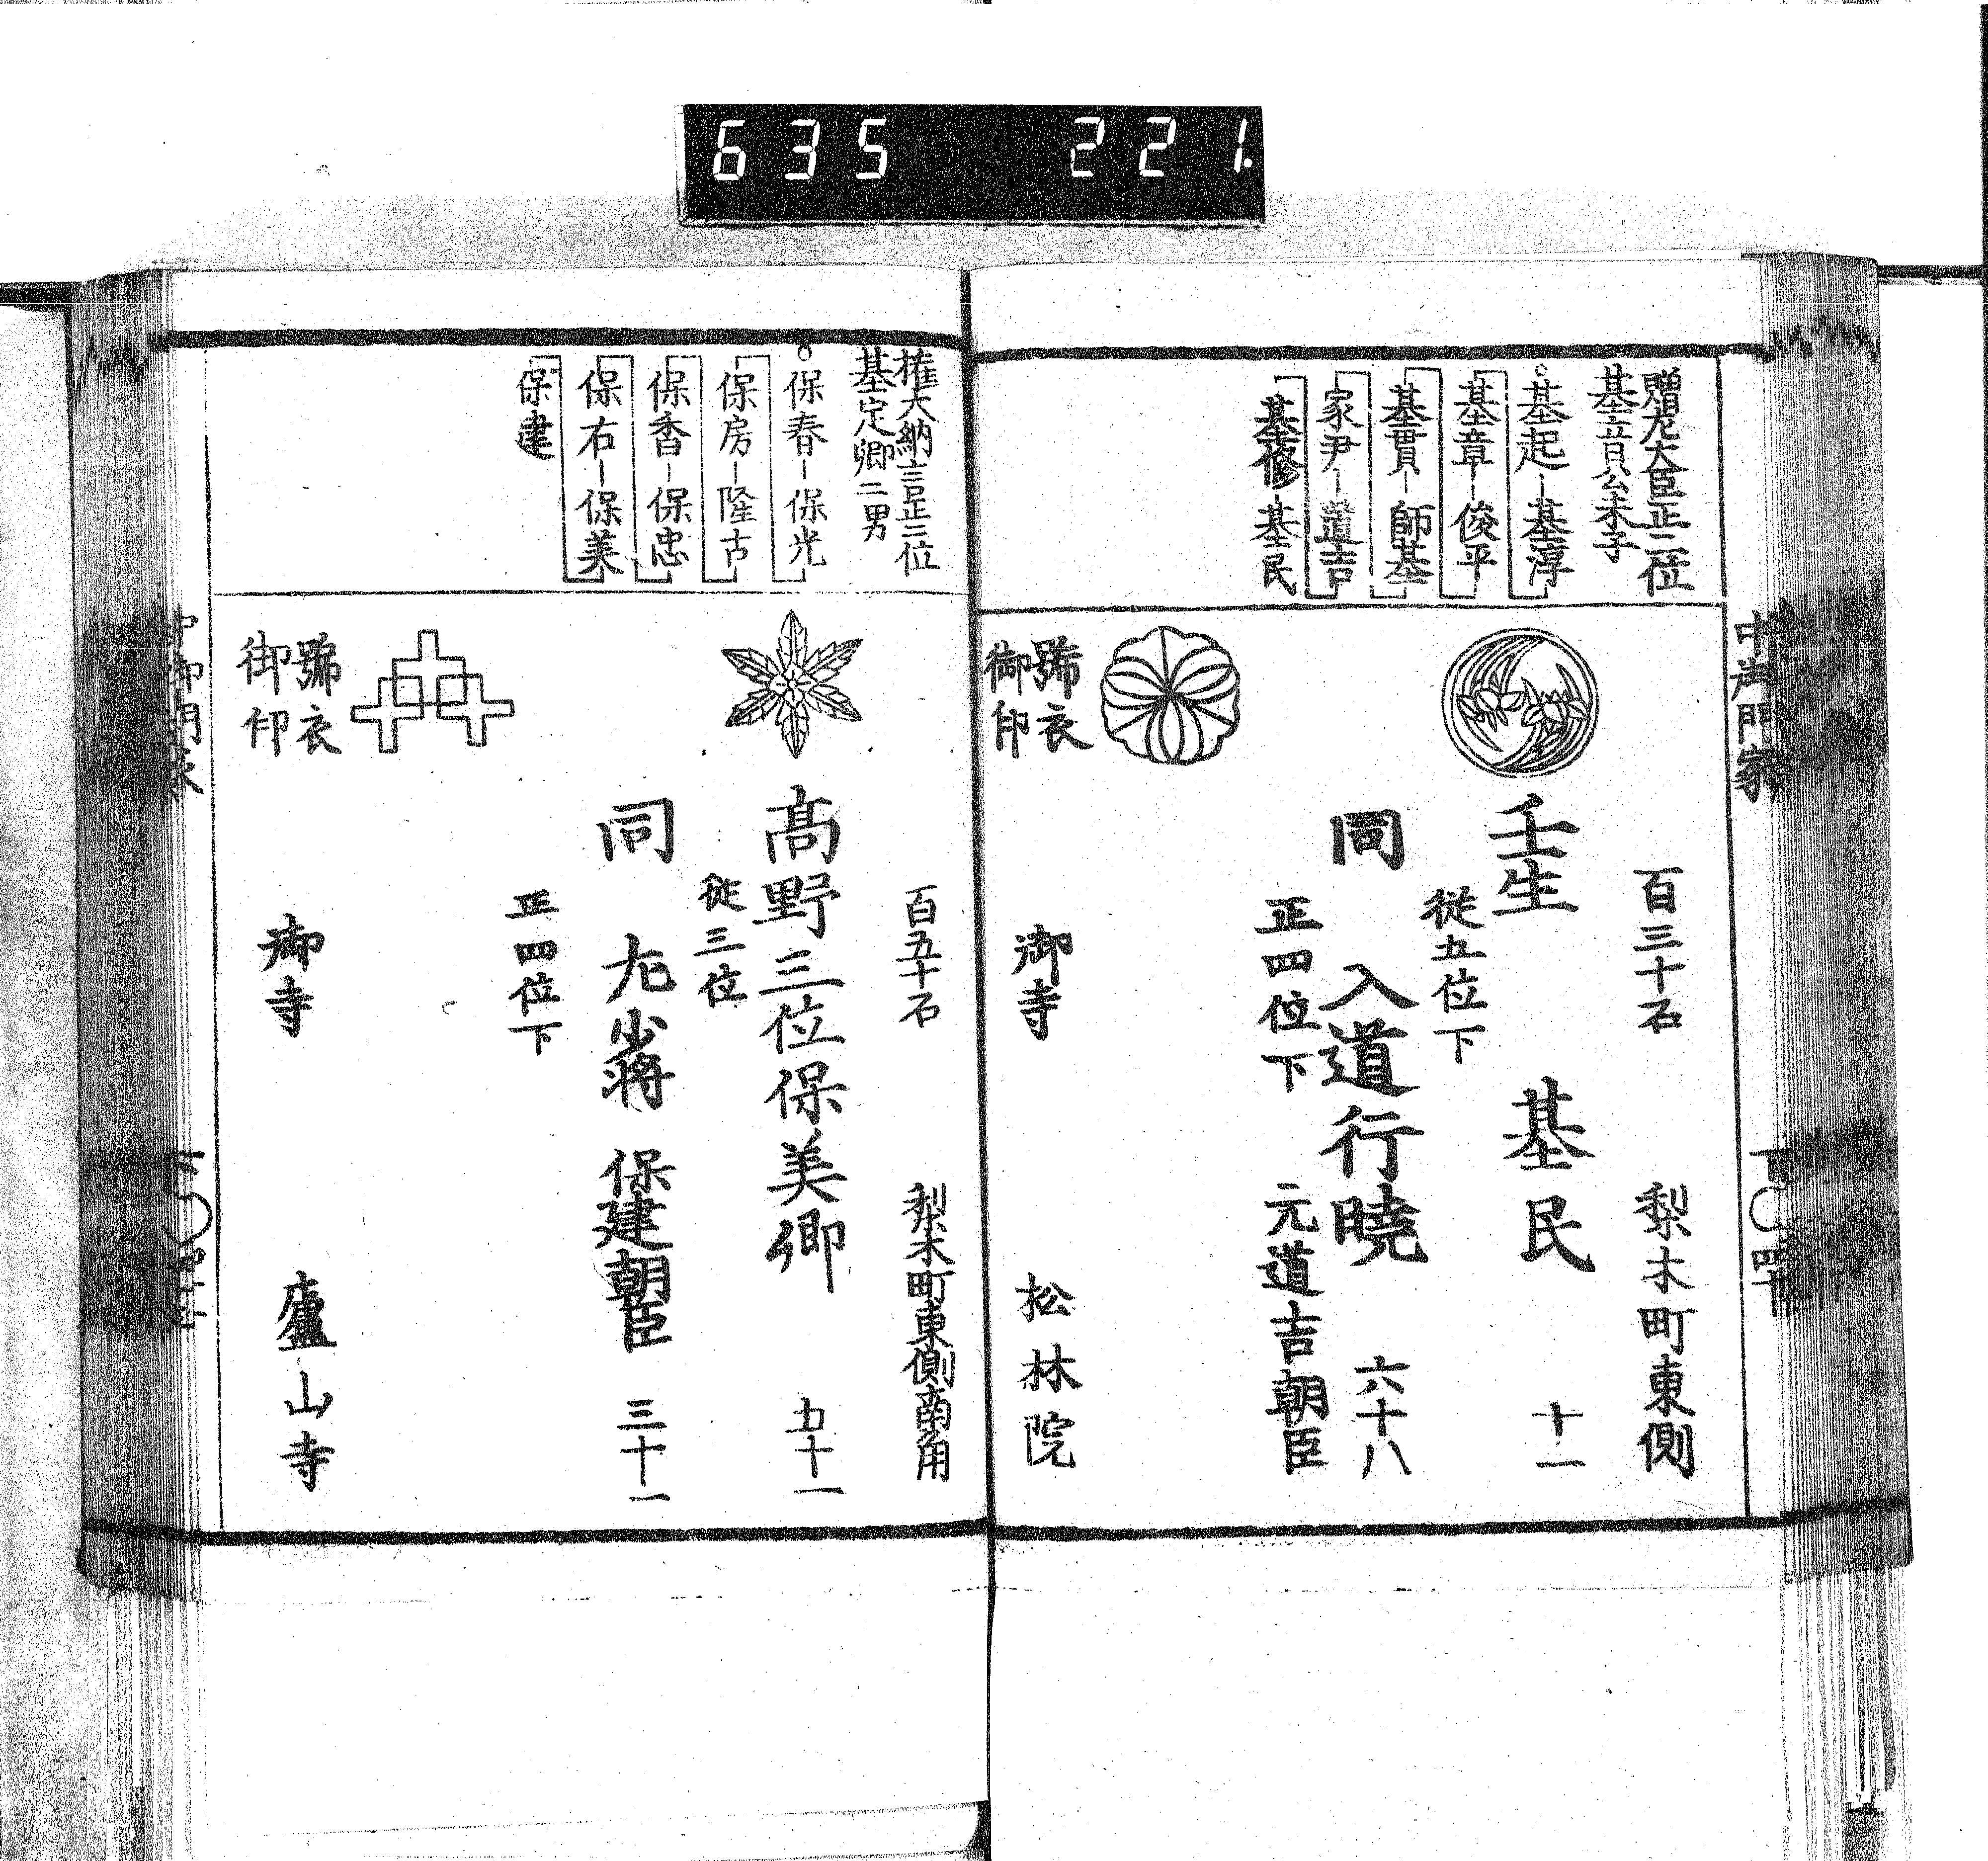 635 221.
中御門家
贈左大臣正二位
基音公末子
基起－基淳
基章－俊平
基貫－師基
家尹－道吉
基修－基民
百三十石
梨木町東側
壬生 基民 十一
従五位下
同 入道行曉 六十八
正四位下 元道吉朝臣
號衣
御印
御寺 松林院
権大納言正三位
基定卿二男
保春－保光
保房－隆古
保香－保忠
保右－保美
保建
百五十石
梨木町東側南角
高野三位保美卿 五十一
従三位
同 左少將 保建朝臣 三十一
正四位下
號衣
御印
御寺 廬山寺